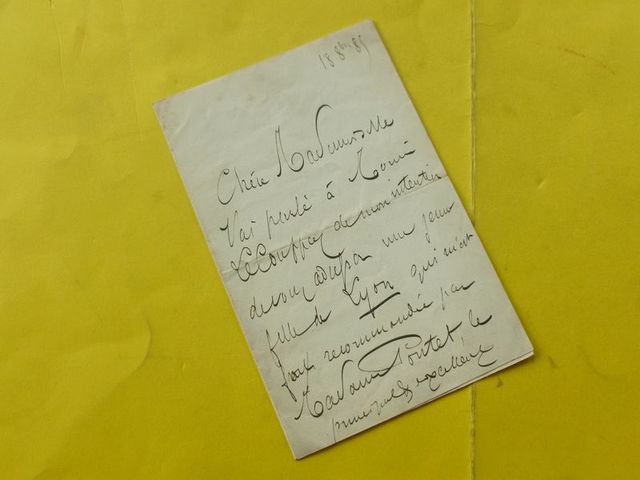 18 8bre 85
Chère Mademoiselle
J'ai parlé à Mme
Le Couppey de mon intention
de vous adresser une jeune
fille de Lyon qui m'est
fort recommandée par
Madame Pontet le
principal & excellent